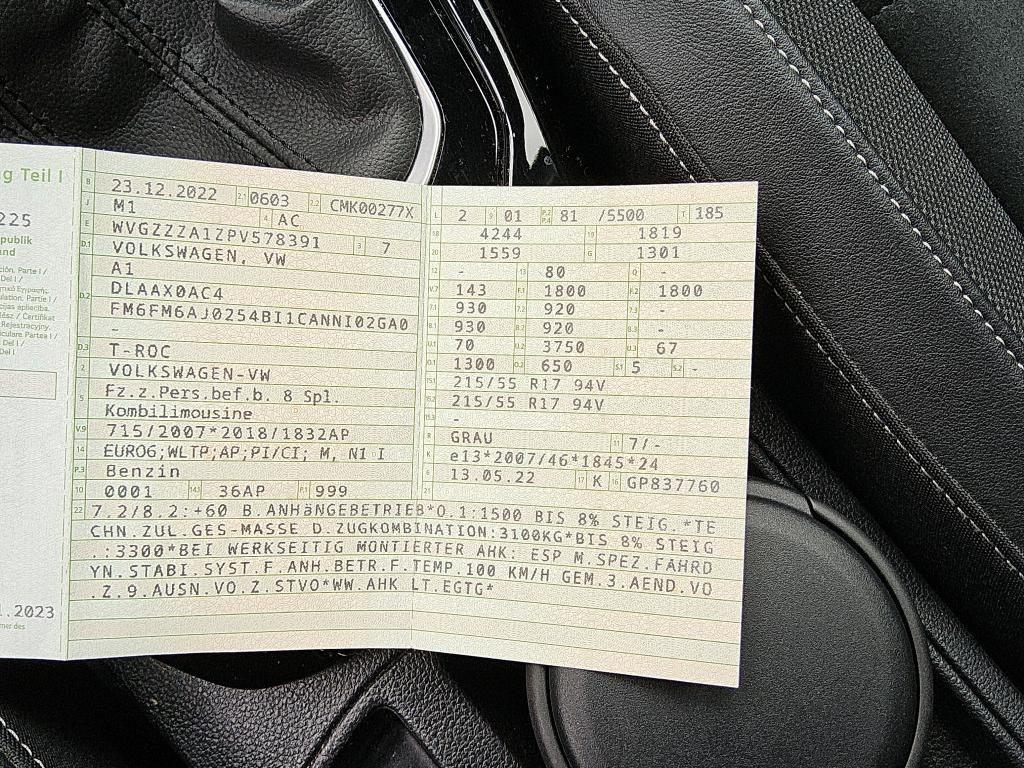 g Teil I
225
publik
and
ción. Parte I /
Del I /
ulation. Partie I /
Rejestracyjny.
iculare Partea I /
Del I
.2023
mer des
B 23.12.2022 2.1 0603 2.2 CMK00277X
J M1 4 AC
E WVGZZZA1ZPV578391 3 7
D.1 VOLKSWAGEN, VW
A1
D.2 DLAAX0AC4
FM6FM6AJ0254BI1CANNI02GA0
-
D.3 T-ROC
2 VOLKSWAGEN-VW
5 Fz.z.Pers.bef.b. 8 Spl.
Kombilimousine
V.9 715/2007*2018/1832AP
14 EURO6;WLTP;AP;PI/CI; M, N1 I
P.3 Benzin
10 0001 14.1 36AP P.1 999
L 2 9 01 P.2 P.4 81 /5500 T 185
18 4244 19 1819
20 1559 G 1301
12 - 13 80 Q -
V.7 143 F.1 1800 F.2 1800
7.1 930 7.2 920 7.3 -
8.1 930 8.2 920 8.3 -
U.1 70 U.2 3750 U.3 67
O.1 1300 O.2 650 S.1 5 S.2 -
15.1 215/55 R17 94V
15.2 215/55 R17 94V
15.3 -
R GRAU 11 7/-
K e13*2007/46*1845*24
6 13.05.22 17 K 16 GP837760
21
22 7.2/8.2:+60 B.ANHäNGEBETRIEB*O.1:1500 BIS 8% STEIG.*TE
CHN.ZUL.GES-MASSE D.ZUGKOMBINATION:3100KG*BIS 8% STEIG
.:3300*BEI WERKSEITIG MONTIERTER AHK: ESP M.SPEZ.FAHRD
YN.STABI.SYST.F.ANH.BETR.F.TEMP.100 KM/H GEM.3.AEND.VO
.Z.9.AUSN.VO.Z.STVO*WW.AHK LT.EGTG*